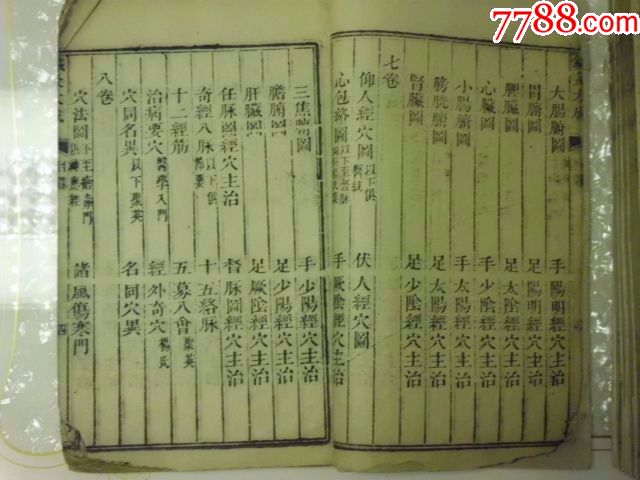 7788.com
中国收藏热线
大腸腑圖 手陽明經穴主治
胃腑圖 足陽明經穴主治
脾臟圖 足太陰經穴主治
心臟圖 手少陰經穴主治
小腸腑圖 手太陽經穴主治
膀胱腑圖 足太陽經穴主治
腎臟圖 足少陰經穴主治
七卷
仰人經穴圖以下俱醫統 伏人經穴圖
心包絡圖 手厥陰經穴主治
三焦腑圖 手少陽經穴主治
膽腑圖 足少陽經穴主治
肝臟圖 足厥陰經穴主治
任脉圖經穴主治 督脉圖經穴主治
奇經八脉 十五絡脉
十二經筋 五募八會聚英
治病要穴醫學入門 經外奇穴楊氏
穴同名異以下聚英 名同穴異
八卷
穴法圖 諸風傷寒門